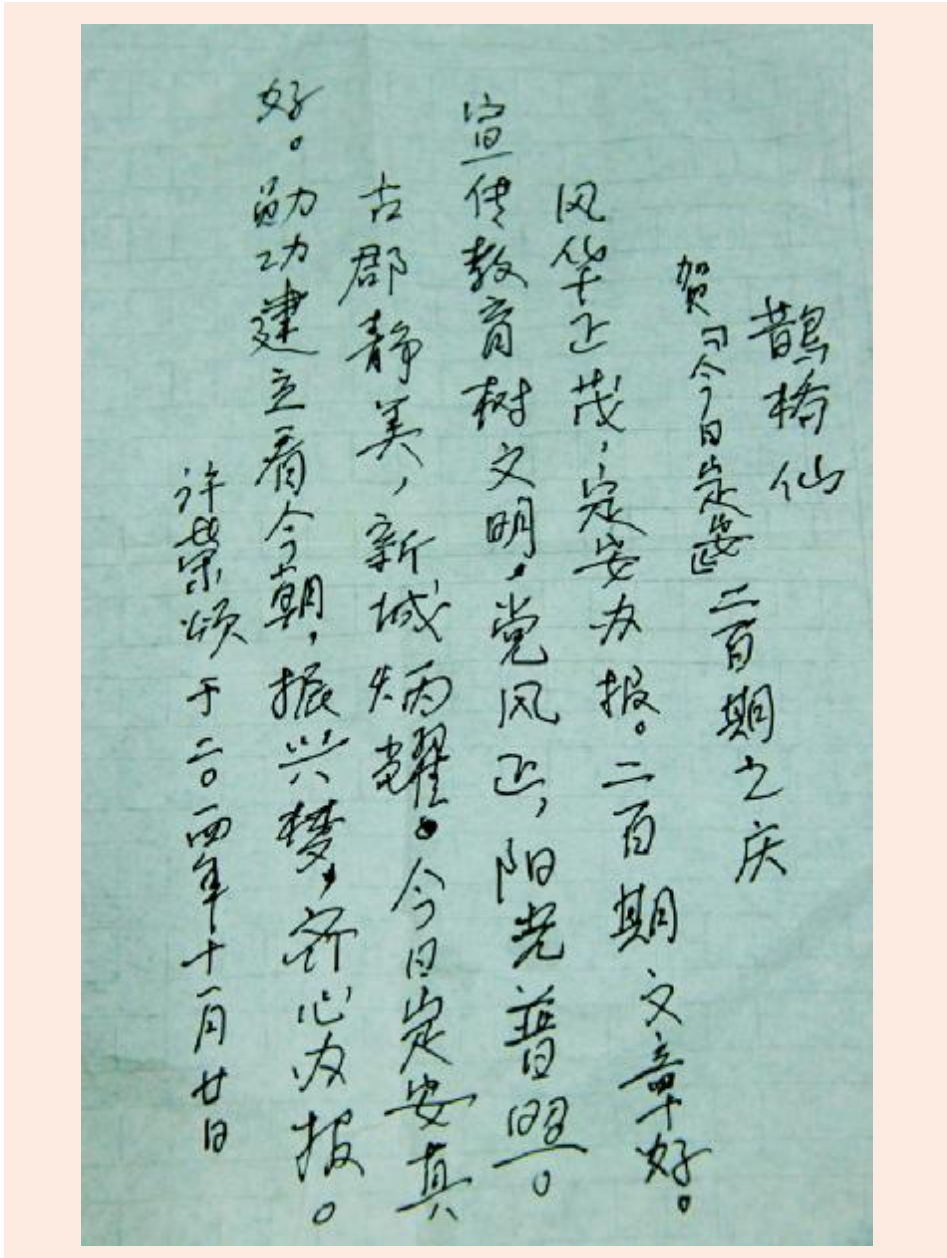 鹊桥仙
贺《今日定安》二百期之庆
风华正茂，定安办报。二百期文章好。
宣传教育树文明，党风正，阳光普照。
古郡静美，新城炳耀。今日定安真
好。勋功建立看今朝，振兴梦，齐心办报。
许荣颂于二〇一四年十一月廿日